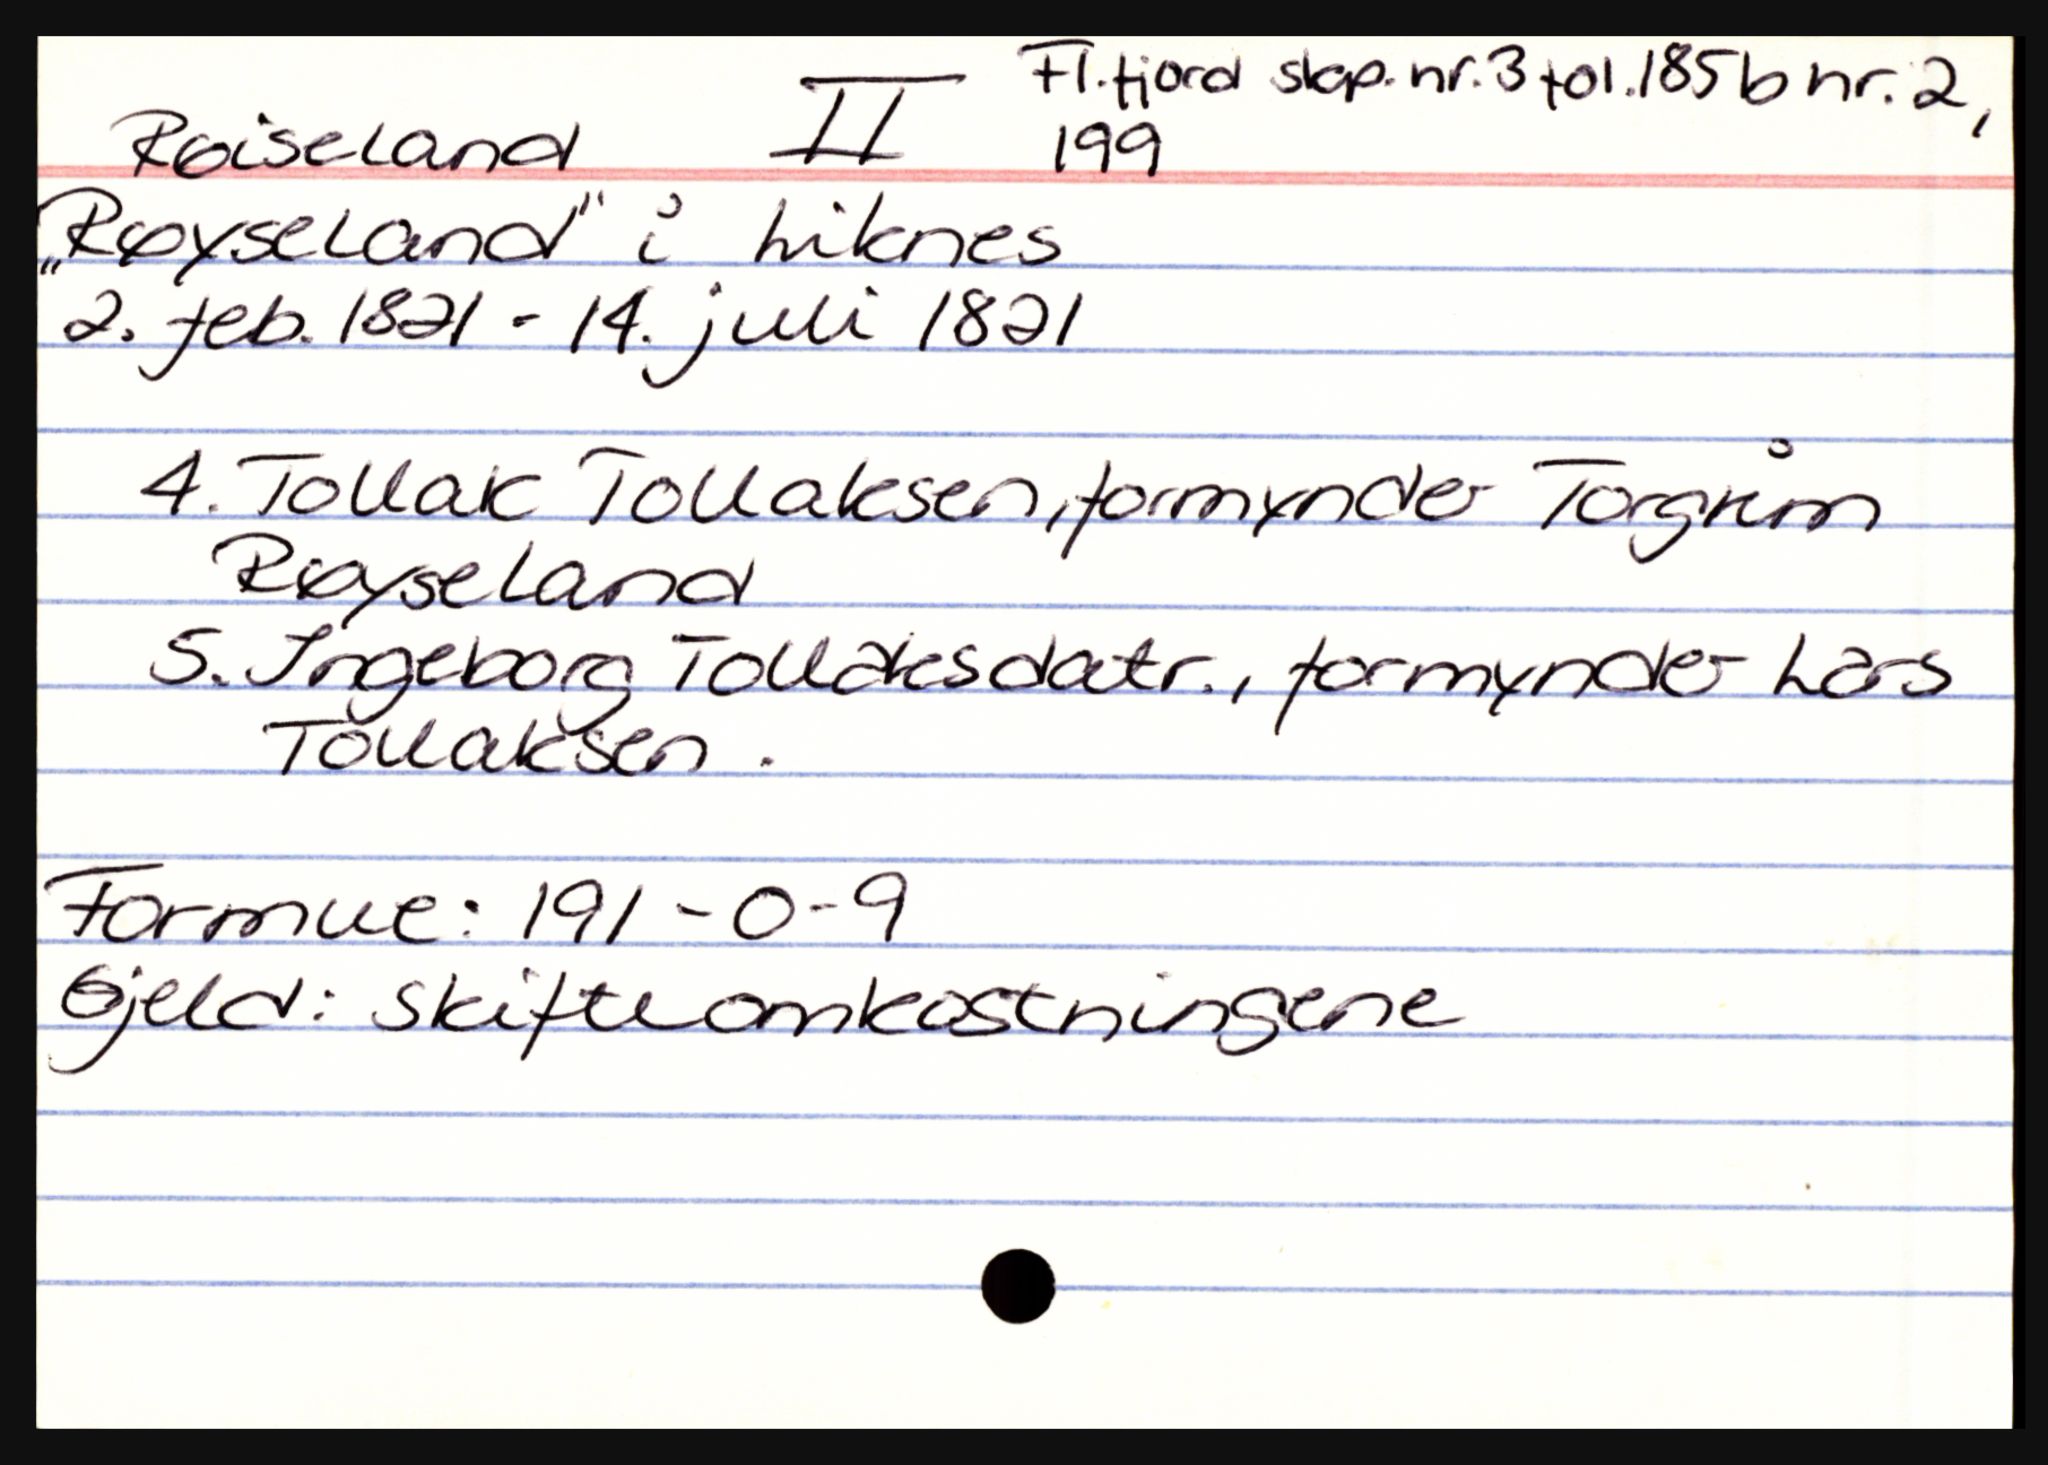 Røiseland II Fl.fjord skp.nr.3 fol.185b nr.2,
199
„Røyseland" i Liknes
2. feb. 1821 - 14. juli 1821
4. Tollak Tollaksen, formynder Torgrim
Røyseland
5. Ingeborg Tollaksdatr., formynder Lars
Tollaksen.
Formue: 191-0-9
Gjeld: skifteomkostningene